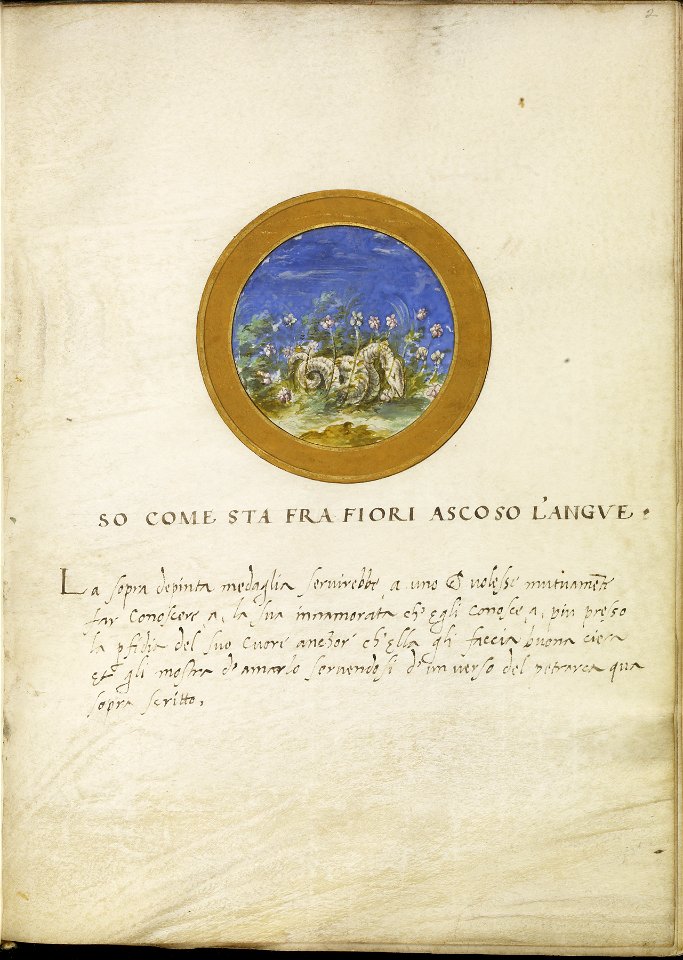 2
SO COME STA FRA FIORI ASCOSO L'ANGVE.
La sopra depinta medaglia servirebbe a uno volesse
far conoscere a, la sua innamorata ch'egli conosce a,
la pfidia del suo cuore anchor ch'ella gli faccia buona ciera
et gli mostra d'amarlo servendosi d'un verso del petrarca qua
sopra scritto,